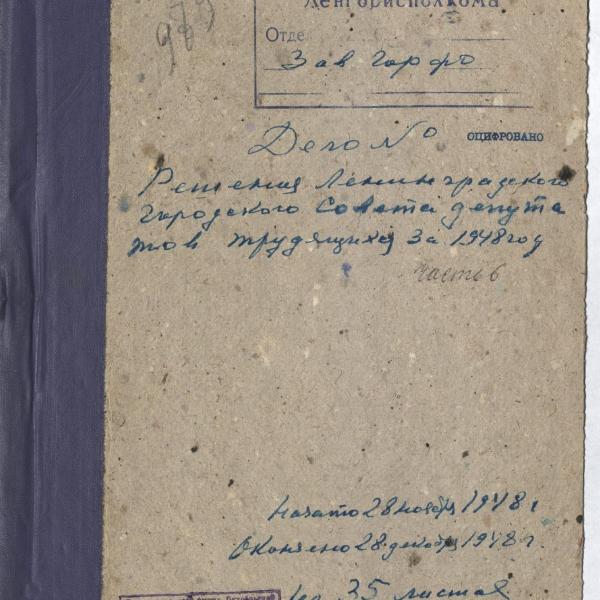 Ленгорисполкома
Отде
Зав Горфо
Дело №
ОЦИФРОВАНО
Решения Ленинградского
Городского Совета депута
тов трудящихся за 1948 год
часть 6
Начато 28 ноября 1948 г
Окончено 28 декабря 1948 г.
на 35 листах